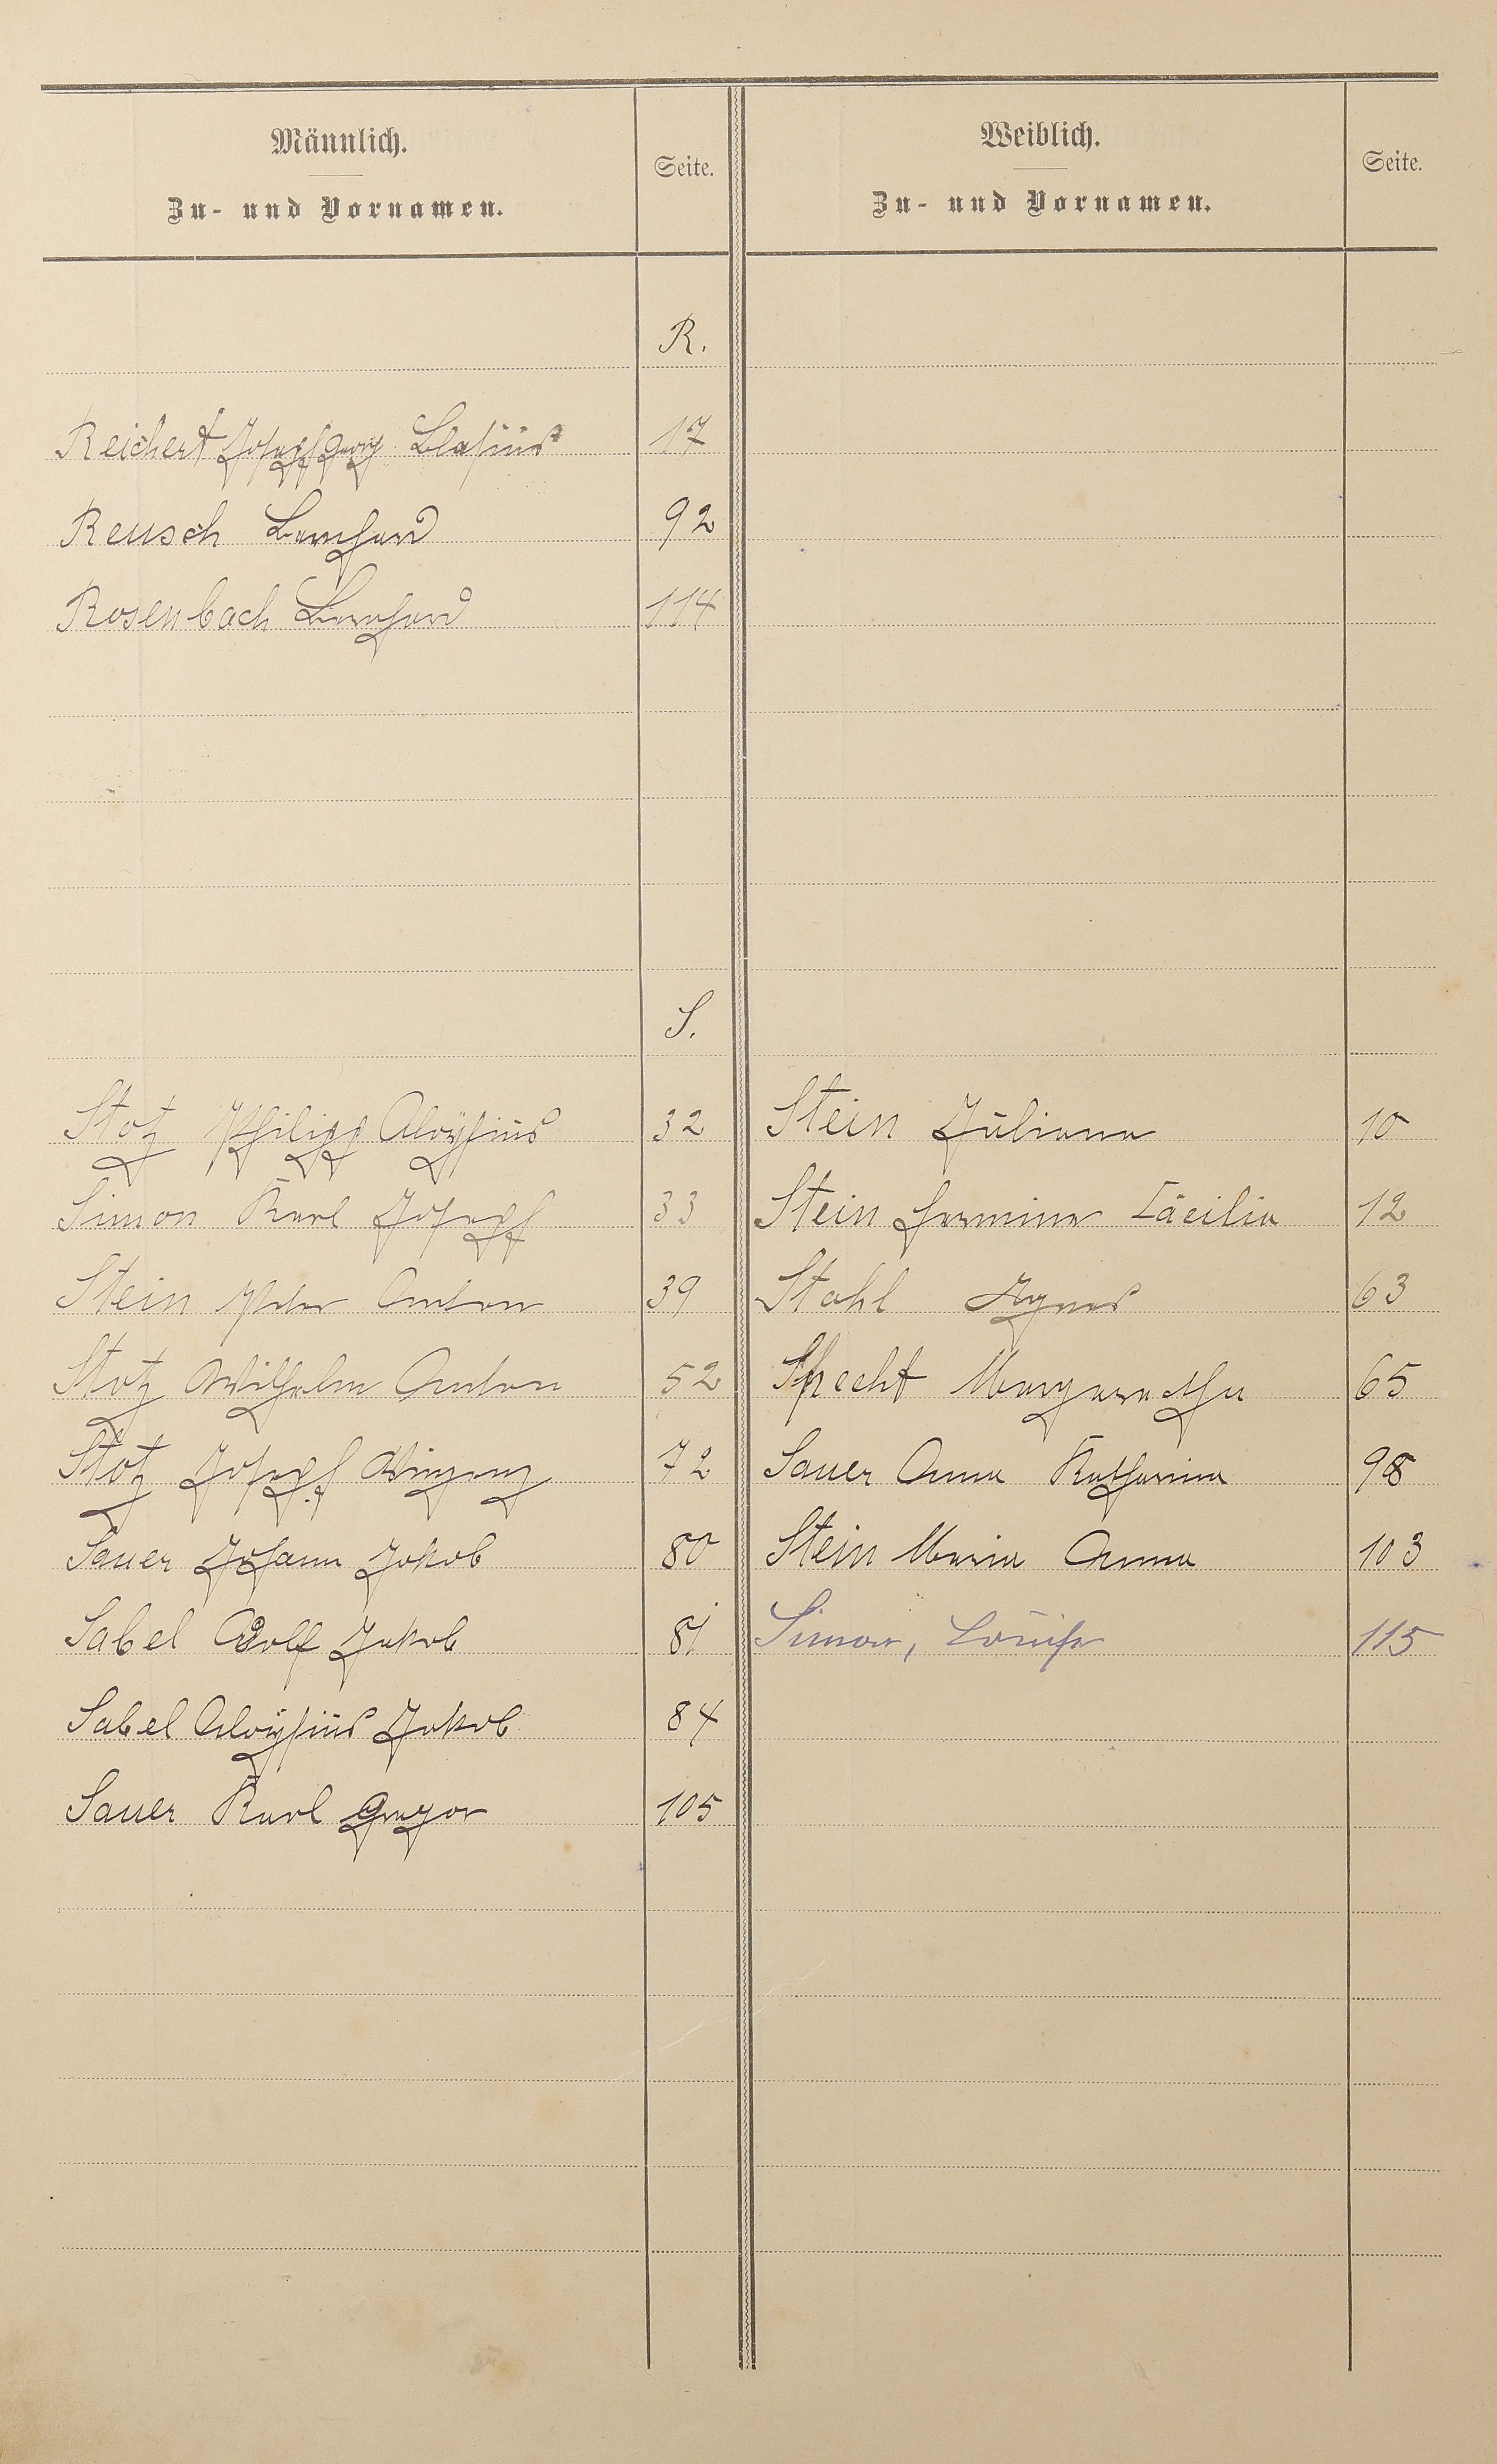 Männlich.
Zu- und Vornamen.
Seite.
Weiblich.
Zu- und Vornamen.
Seite.
R.
Reichert Joseph Georg Blasius 17
Reusch Bernhard 92
Rosenbach Bernhard 114
S.
Stotz Philipp Aloysius 32 Stein Juliana 10
Simon Karl Joseph 33 Stein Hermina Cäcilia 12
Stein Peter Anton 39 Stahl Agnes 63
Stotz Wilhelm Anton 52 Specht Margaretha 65
Stotz Joseph Vinzenz 72 Sauer Anna Katharina 98
Sauer Johann Jakob 80 Stein Maria Anna 103
Sabel Adolf Jakob 81 Simon, Louise 115
Sabel Aloysius Jakob 84
Sauer Karl Gregor 105